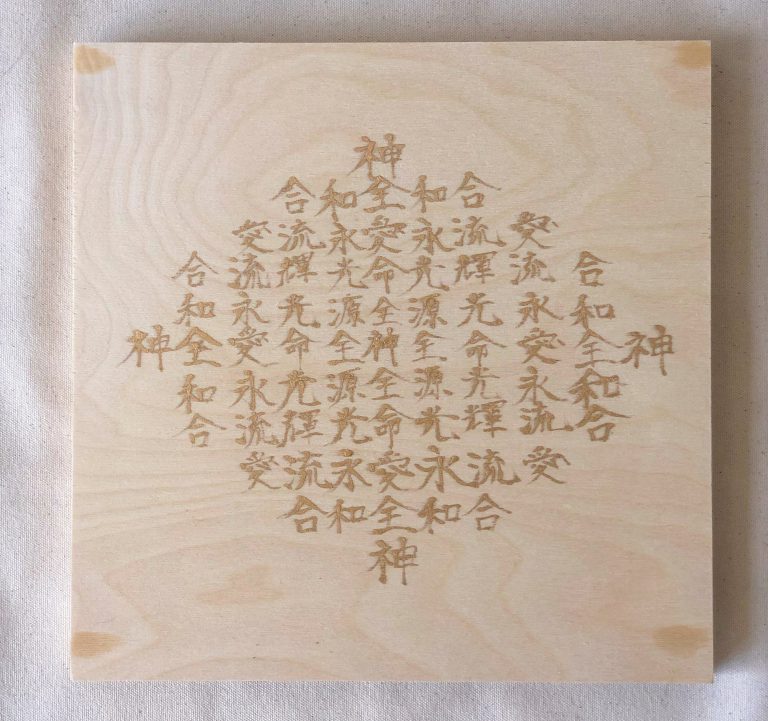 神
合和全和合
愛流永愛永流愛
合流輝光命光輝流合
和永光源全源光永和
神全愛命全神全命愛全神
和永光源全源光永和
合流輝光命光輝流合
愛流永愛永流愛
合和全和合
神